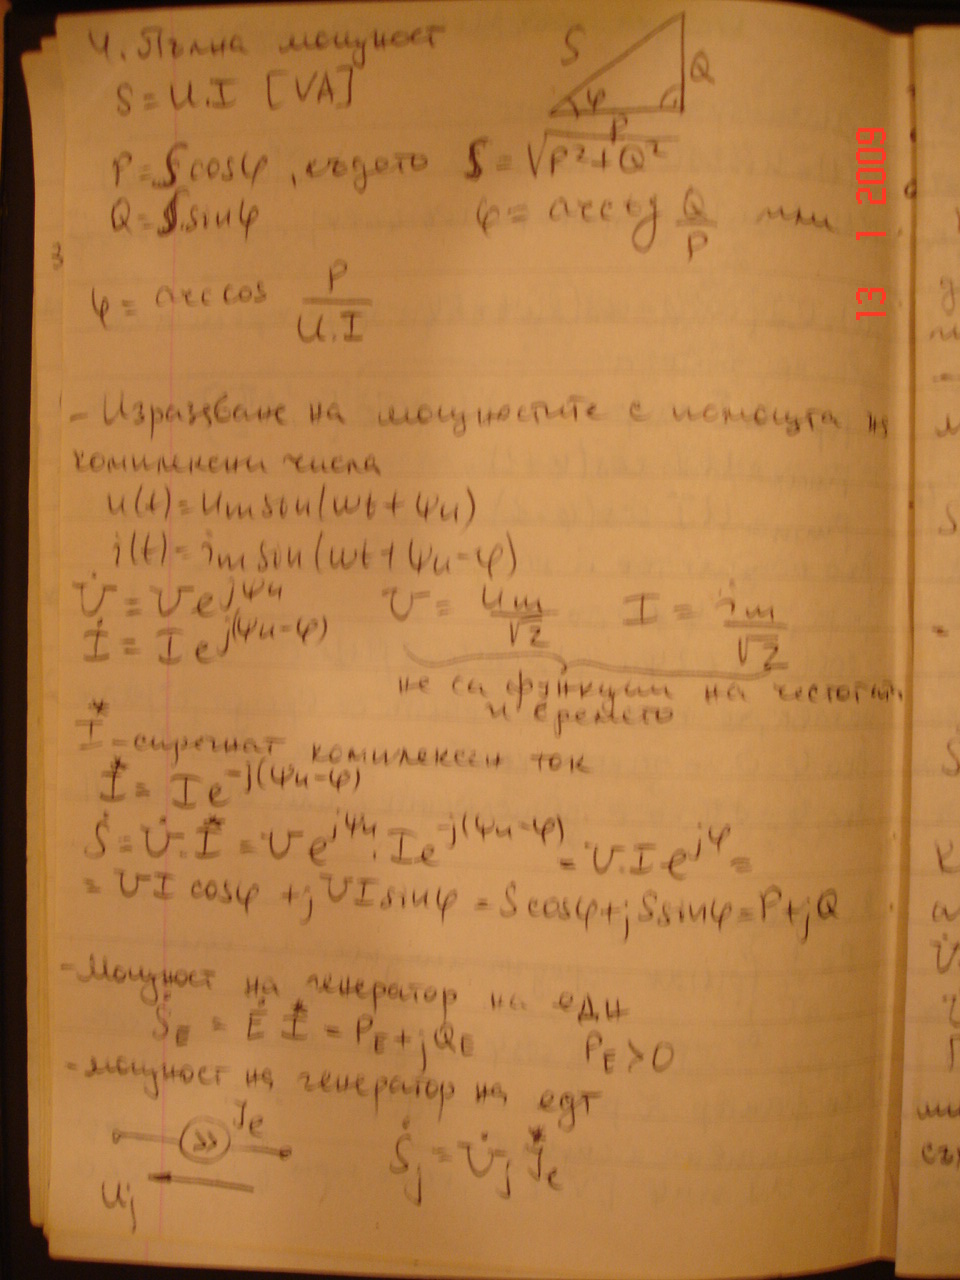 4. Пълна мощност
S = U.I [VA]
S
Q
φ
P
P = S cosφ, където S = √P²+Q²
Q = S.sinφ φ = arctg Q/P или
φ = arccos P/U.I
- Изразяване на мощностите с помощта на
комплексни числа
u(t) = um sin(ωt + ψu)
i(t) = im sin(ωt + ψu - φ)
U̇ = U e^jψu U = um/√2 I = im/√2
İ = I e^j(ψu-φ)
не са функции на честотат
и времето
I* - спрегнат комплексен ток
I* = I e^-j(ψu-φ)
Ṡ = U̇.I* = U e^jψu . I e^-j(ψu-φ) = U.I e^jφ =
= UI cosφ + j UI sinφ = S cosφ + j S sinφ = P + jQ
- Мощност на генератор на едн
ṠE = Ė I* = PE + jQE PE > 0
- мощност на генератор на едт
Je
Uj
Ṡj = U̇j J*e
13 1 2009